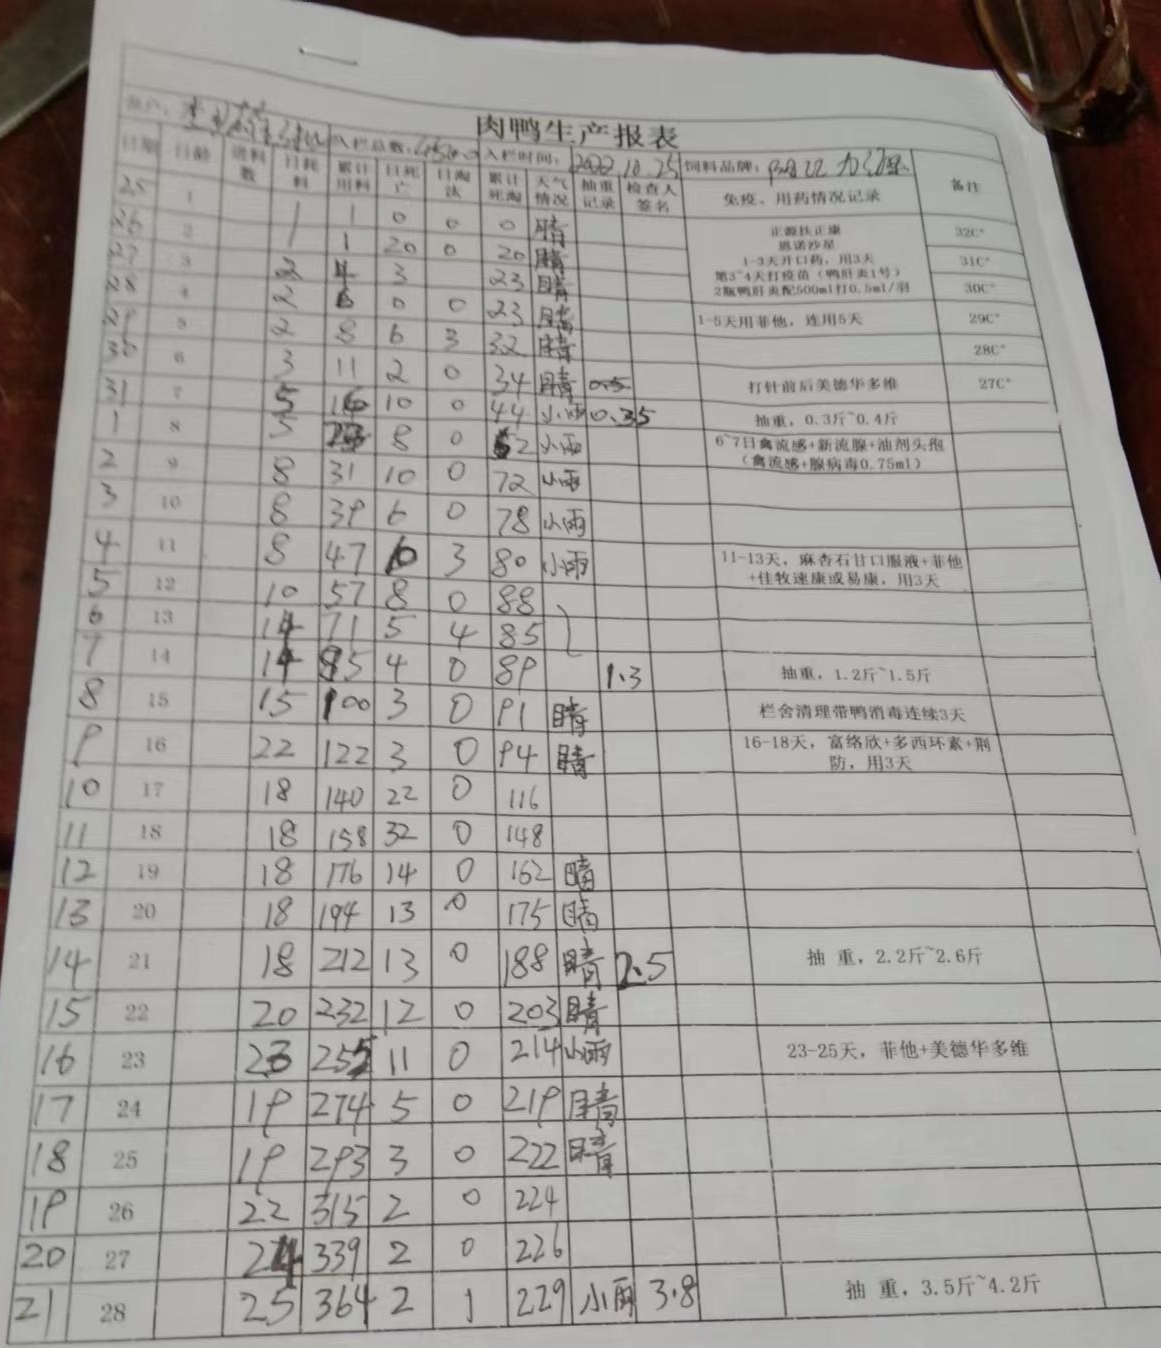 肉鸭生产报表
入栏总数: 入栏时间: 2022.10.25 饲料品牌:
日期 日龄 进料数 日耗料 累计用料 日死亡 日淘汰 累计死淘 天气情况 抽重记录 检查人签名 免疫、用药情况记录 备注
25 1 1 1 0 0 0 晴 正源扶正康 32C°
恩诺沙星
26 2 1 1 20 0 20 晴 1-3天开口药,用3天 31C°
27 3 2 4 3 23 晴 第3~4天打疫苗(鸭肝炎1号) 30C°
2瓶鸭肝炎配500ml打0.5ml/羽
28 4 2 6 0 0 23 晴 1-5天用菲他,连用5天 29C°
29 5 2 8 6 3 32 晴 28C°
30 6 3 11 2 0 34 晴 打针前后美德华多维 27C°
31 7 5 16 10 0 44 小雨 0.35 抽重,0.3斤~0.4斤
1 8 5 8 0 62 小雨 6~7日禽流感+新流腺+油剂头孢
(禽流感+腺病毒0.75ml)
2 9 8 31 10 0 72 小雨
3 10 8 39 6 0 78 小雨
4 11 8 47 6 3 80 小雨 11-13天,麻杏石甘口服液+菲他
+佳牧速康或易康,用3天
5 12 10 57 8 0 88
6 13 14 71 5 4 85
7 14 14 85 4 0 89 1.3 抽重,1.2斤~1.5斤
8 15 15 100 3 0 91 晴 栏舍清理带鸭消毒连续3天
9 16 22 122 3 0 94 晴 16-18天,富络欣+多西环素+荆
防,用3天
10 17 18 140 22 0 116
11 18 18 158 32 0 148
12 19 18 176 14 0 162 晴
13 20 18 194 13 0 175 晴
14 21 18 212 13 0 188 晴 2.5 抽 重,2.2斤~2.6斤
15 22 20 232 12 0 203 晴
16 23 23 255 11 0 214 小雨 23-25天,菲他+美德华多维
17 24 19 274 5 0 219 晴
18 25 19 293 3 0 222 晴
19 26 22 315 2 0 224
20 27 24 339 2 0 226
21 28 25 364 2 1 229 小雨 3.8 抽 重,3.5斤~4.2斤